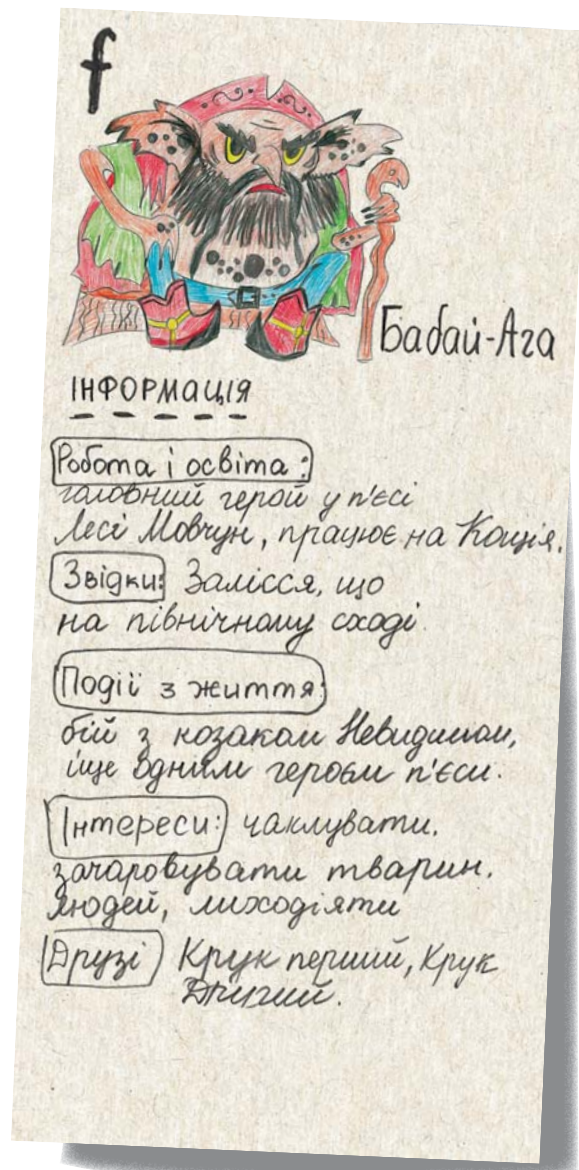 f
Бабай-Ага
ІНФОРМАЦІЯ
Робота і освіта:
головний герой у п'єсі
Лесі Мовчун, працює на Кощія.
Звідки: Залісся, що
на північному сході.
Події з життя:
бій з козаком Невидимом,
іще одним героєм п'єси.
Інтереси: чаклувати,
зачаровувати тварин,
людей, лиходіяти
Друзі Крук перший, Крук
Другий.